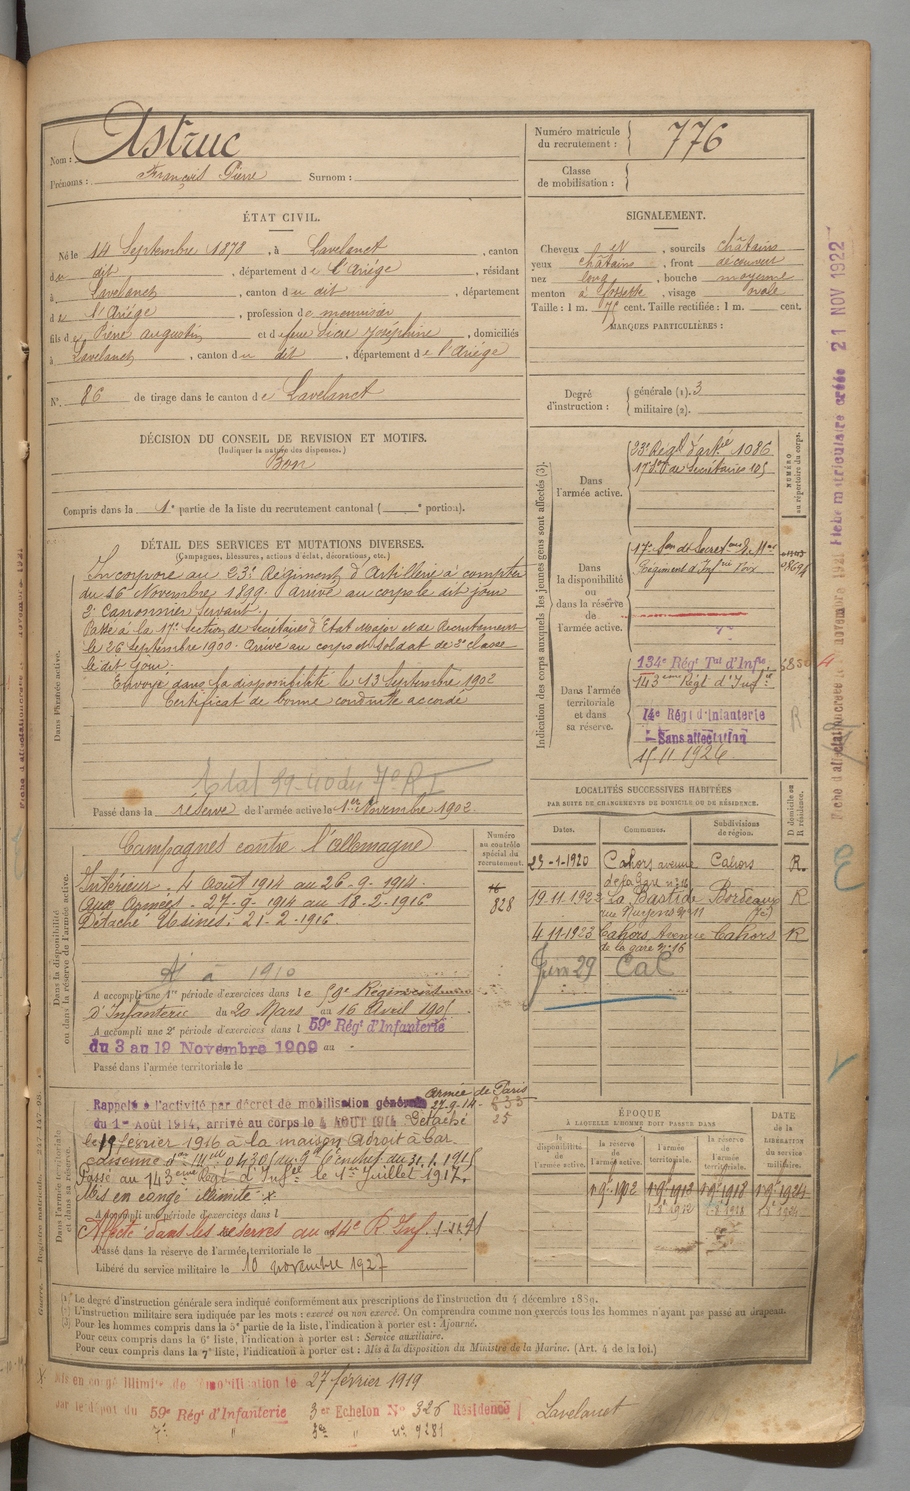 Nom : Astruc
Prénoms : François Pierre Surnom :
Numéro matricule du recrutement : 776
Classe de mobilisation :
ÉTAT CIVIL.
Né le 14 Septembre 1878, à Lavelanet, canton
du dit, département de l'Ariége, résidant
à Lavelanet, canton du dit, département
de l'Ariége, profession de menuisier
fils de Pierre augustin et de feue Sicre Joséphine, domiciliés
à Lavelanet, canton du dit, département de l'Ariége
N° 86 de tirage dans le canton de Lavelanet
DÉCISION DU CONSEIL DE REVISION ET MOTIFS.
(Indiquer la nature des dispenses.)
Bon
Compris dans la 1e partie de la liste du recrutement cantonal ( e portion).
SIGNALEMENT.
Cheveux et, sourcils châtains
yeux châtains, front découvert
nez long, bouche moyenne
menton à fossette, visage ovale
Taille : 1 m. cent. Taille rectifiée : 1 m. cent.
MARQUES PARTICULIÈRES :
Degré d'instruction : générale (1). 3
militaire (2).
DÉTAIL DES SERVICES ET MUTATIONS DIVERSES.
(Campagnes, blessures, actions d'éclat, décorations, etc.)
Dans l'armée active.
Incorporé au 23e Régiment d'Artillerie à compter
du 16 Novembre 1899. Arrivé au corps le dit jour
2e Canonnier Servant.
Passé à la 17e Section de Secrétaires d'Etat Major et de Recrutement
le 26 septembre 1900. Arrivé au corps et soldat de 2e classe
le dit jour.
Envoyé dans la disponibilité le 13 Septembre 1902
Certificat de bonne conduite accordé
Passé dans la réserve de l'armée active le 1er Novembre 1902
Indication des corps auxquels les jeunes gens sont affectés (3).
NUMÉRO au répertoire du corps.
Dans l'armée active.
23e Régt d'artie 1086
17e Son de Secrétaires 105
Dans la disponibilité ou dans la réserve de l'armée active.
17e Son de Secret
Régiment d'Infrie Foix
Dans l'armée territoriale et dans sa réserve.
134e Régt Tal d'Infie
143eme Régt d'Infie
14e Régt d'Infanterie
Sans affectation
15.11.1926
R
LOCALITÉS SUCCESSIVES HABITÉES
PAR SUITE DE CHANGEMENTS DE DOMICILE OU DE RÉSIDENCE.
Dates. Communes. Subdivisions de région. D domicile ou R résidence.
23-1-1920 Cahors avenue de la Gare n° 16 Cahors R.
19.11.1922 La Bastide Bordeaux R
4.11.1923 Cahors Avenue de la gare n° 16 Cahors R
Juin 29 Cal
Dans la disponibilité ou dans la réserve de l'armée active.
Numéro au contrôle spécial du recrutement.
828
Campagnes contre l'allemagne
Intérieur. 4 Août 1914 au 26-9-1914.
Aux Armées. 27-9-1914 au 18-2-1916
Détaché Usines. 21-2-1916.
A accompli une 1re période d'exercices dans le 59e Régiment
d'Infanterie du 20 Mars au 16 Avril 1905.
A accompli une 2e période d'exercices dans l 59e Régt d'Infanterie
du 3 au 19 Novembre 1909 au
Passé dans l'armée territoriale le
Dans l'armée territoriale et dans sa réserve.
Armée de Paris
Rappelé à l'activité par décret de mobilisation générale 27.9.14
du 1er Août 1914, arrivé au corps le 4 AOUT 1914 Détaché
le 19 février 1916 à la maison
Passé au 143eme Régt d'Infie le 1er Juillet 1917.
Mis en congé illimité x
A accompli une période d'exercices dans l
Affecté dans les réserves au 14e R. Inf.
Passé dans la réserve de l'armée territoriale le
Libéré du service militaire le 10 novembre 1927
ÉPOQUE
À LAQUELLE L'HOMME DOIT PASSER DANS
la disponibilité de l'armée active. la réserve de l'armée active. l'armée territoriale. la réserve de l'armée territoriale.
DATE DE LA LIBÉRATION DU service militaire.
(1) Le degré d'instruction générale sera indiqué conformément aux prescriptions de l'instruction du 4 décembre 1889.
(2) L'instruction militaire sera indiquée par les mots : exercé ou non exercé. On comprendra comme non exercés tous les hommes n'ayant pas passé au drapeau.
(3) Pour les hommes compris dans la 5e partie de la liste, l'indication à porter est : Ajourné.
Pour ceux compris dans la 6e liste, l'indication à porter est : Service auxiliaire.
Pour ceux compris dans la 7e liste, l'indication à porter est : Mis à la disposition du Ministre de la Marine. (Art. 4 de la loi.)
X Mis en congé illimité de démobilisation le 27 février 1919
par le dépôt du 59e Régt d'Infanterie 3er Echelon N° 326 Résidence Lavelanet
Fiche matriculaire créée 21 NOV 1922